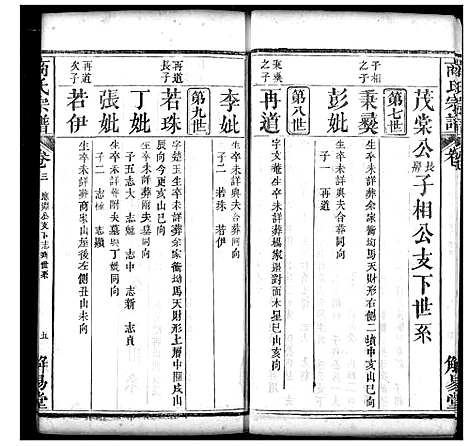 商氏宗譜
卷
茂棠公長房子相公支下世系
第七世
子相之子
秉彝
生卒未詳葬余家衝坳馬天財形右側二墳申亥山向
彭妣
生卒未詳與夫合葬同向
子一 再道
第八世
秉彝之子
再道
字文菴生卒未詳葬楊家
對面木星巳山亥向
李妣
生卒未詳與夫合葬同向
子二 若珠 若伊
第九世
再道長子
若珠
字楚玉生卒未詳葬余家衝坳馬天財形上層中
戌山
向今更亥山巳向
丁妣
生卒未詳葬附夫墓同向
子五 志大 志中 志新 志貞
張妣
生卒未詳葬附夫墓與丁妣同向
子二 志極 志
再道次子
若伊
生卒未詳葬商家山屋後左側丑山未向
商氏宗譜
卷三
公支下志
世系
五
解易堂
解易堂